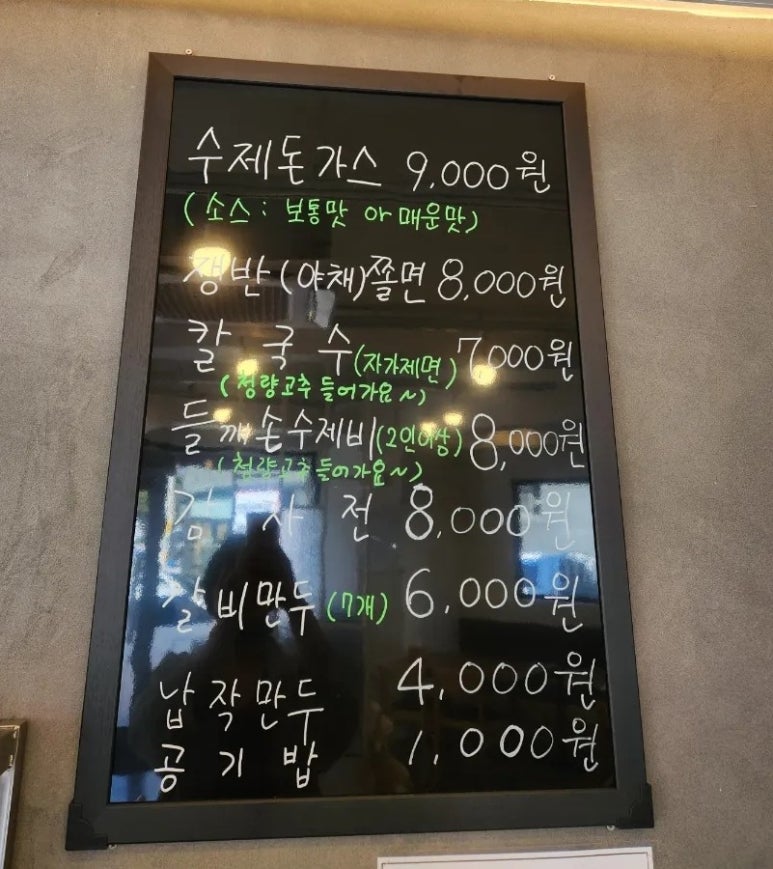 수제돈가스 9,000원
(소스: 보통맛 or 매운맛)
쟁반(야채)쫄면 8,000원
칼국수(자가제면) 7,000원
(청량고추 들어가요~)
들깨손수제비(2인이상) 8,000원
(청량고추 들어가요~)
감자전 8,000원
갈비만두(7개) 6,000원
납작만두 4,000원
공기밥 1,000원